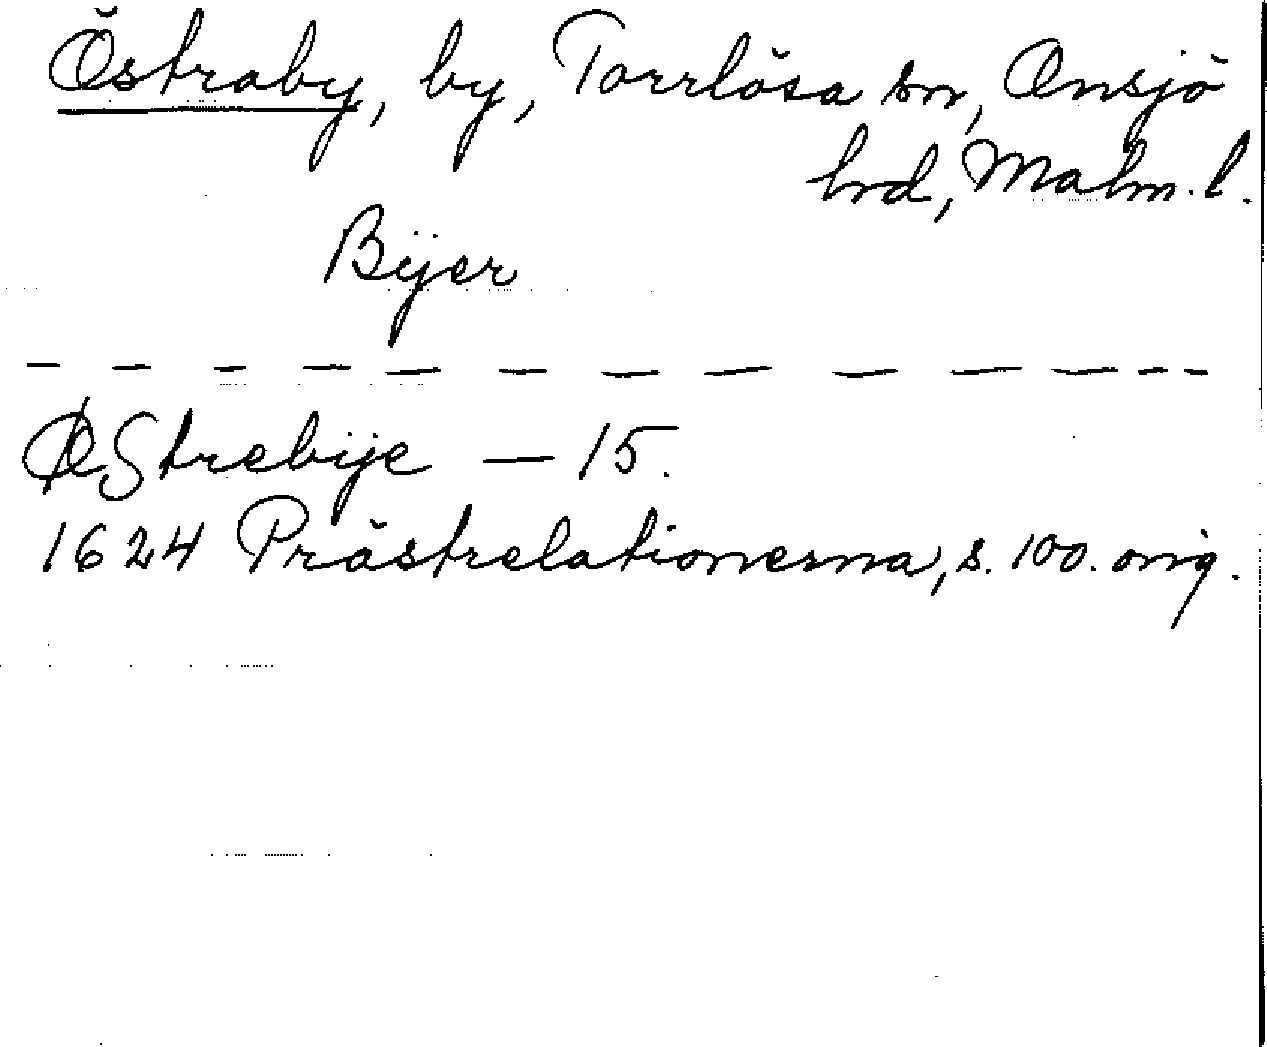 Östraby, by, Torrlösa sn, Onsjö
hrd, Malm. l.
Bÿer
ØStrebÿe — 15.
1624 Prästrelationerna, s. 100. orig.